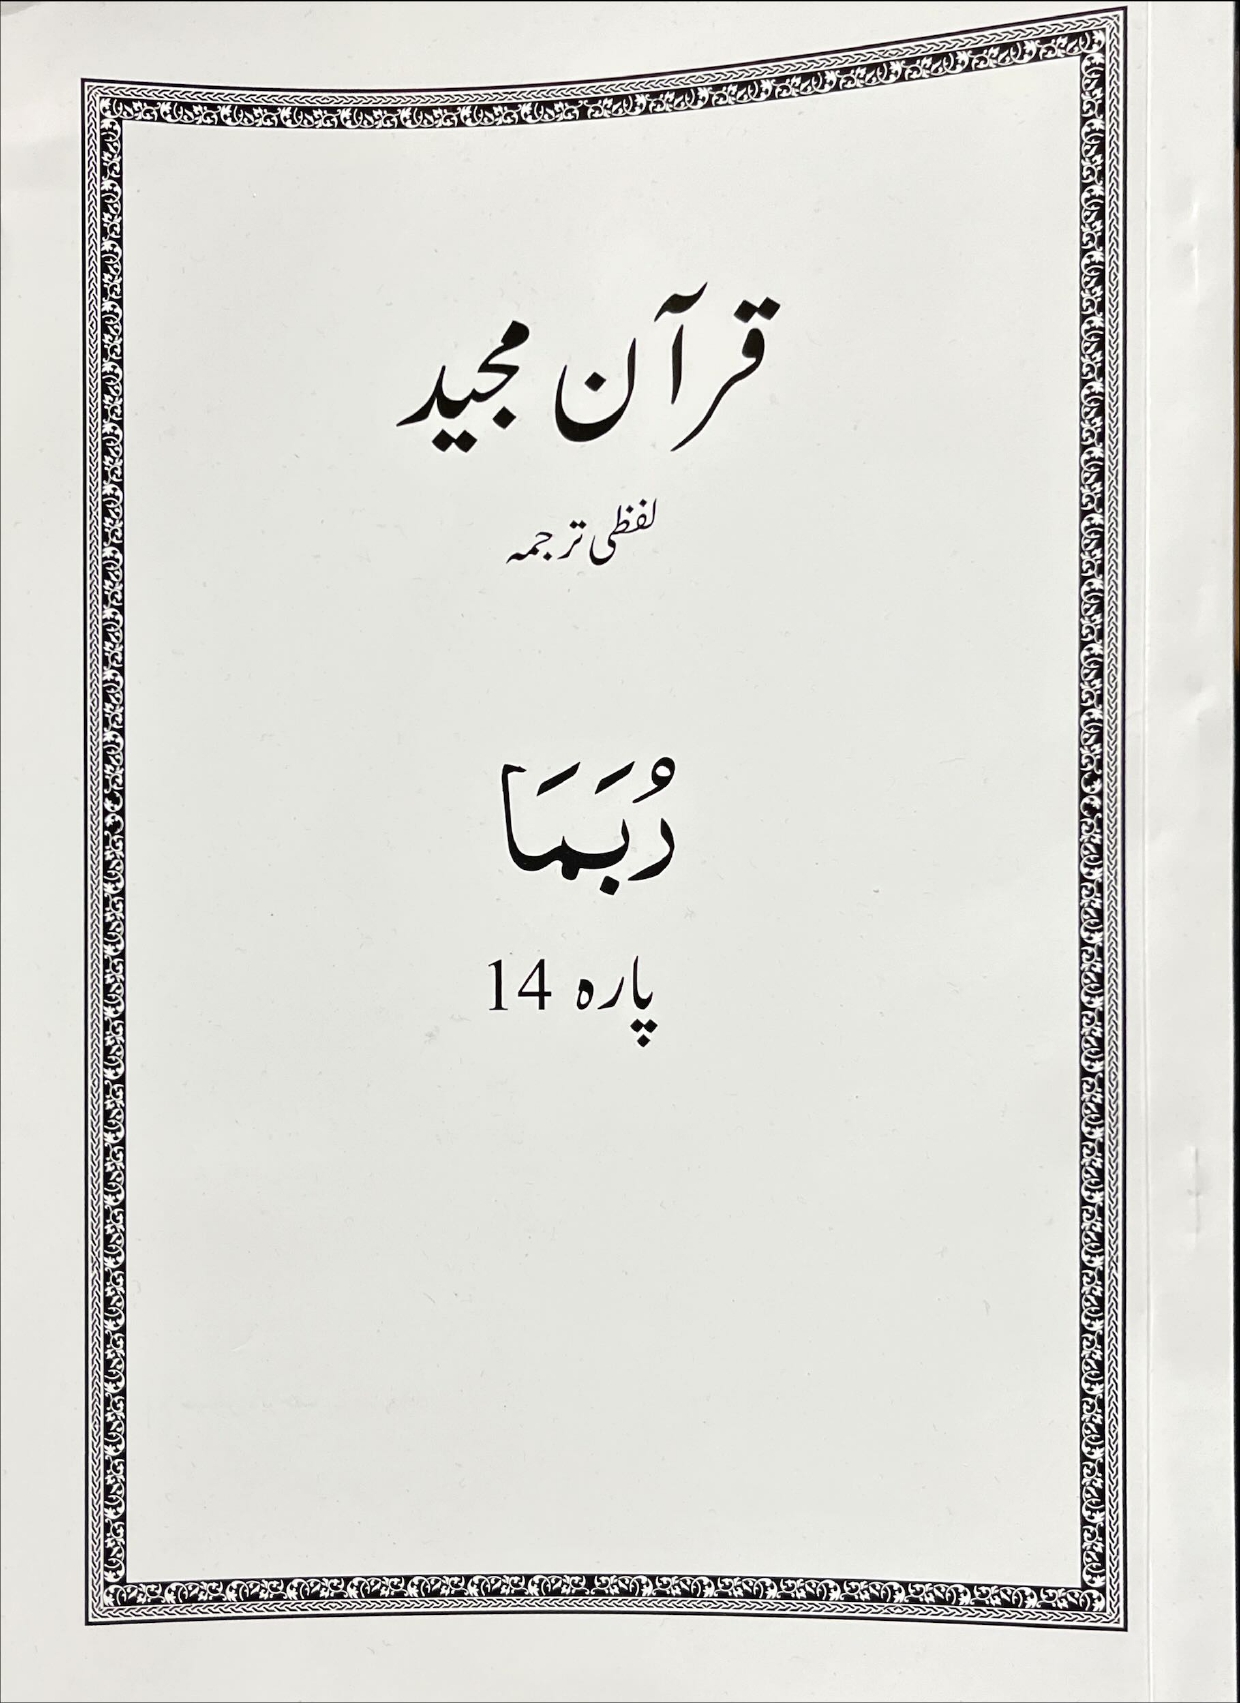 قرآن مجید
لفظی ترجمہ
رُبَمَا
پارہ 14